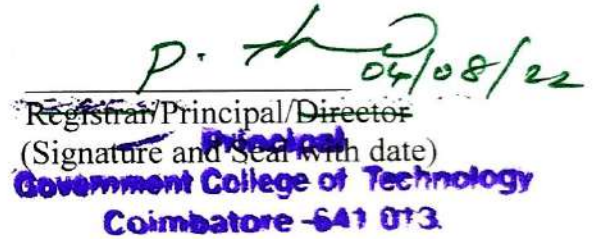 P.
04/08/22
Registrar/Principal/Director
Principal
(Signature and Seal with date)
Government College of Technology
Coimbatore - 641 013.